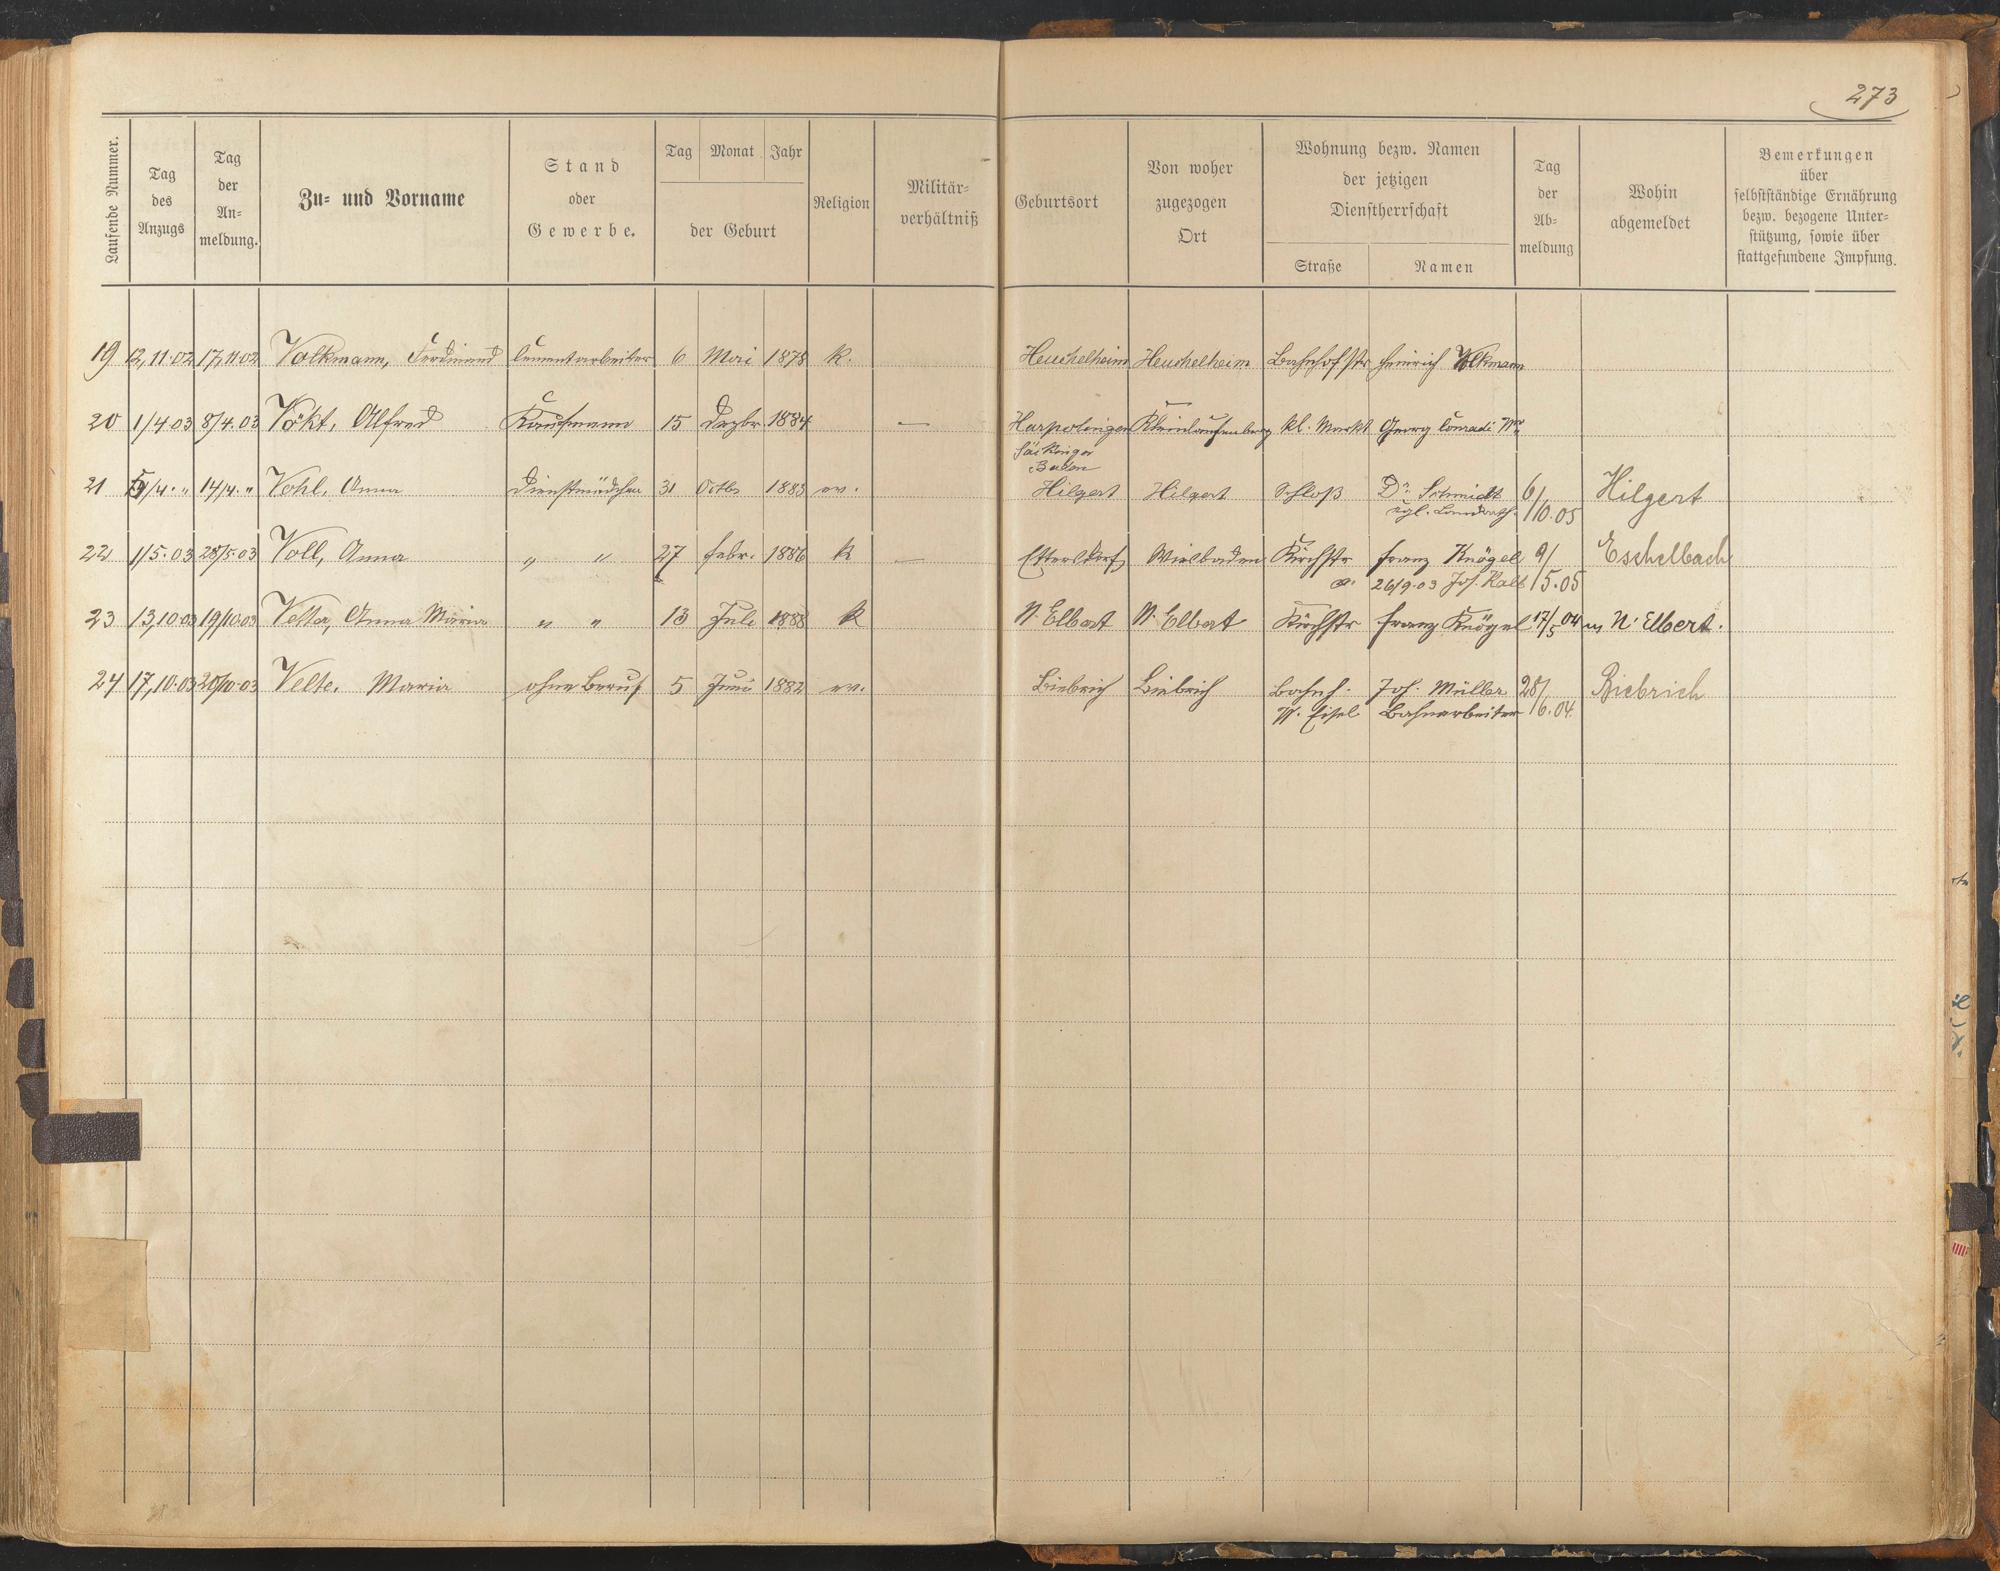 273
Laufende Nummer.
Tag des Anzugs
Tag der An- meldung.
Zu- und Vorname
Stand oder Gewerbe.
Tag Monat Jahr
der Geburt
Religion
Militär- verhältniß
Geburtsort
Von woher zugezogen Ort
Wohnung bezw. Namen der jetzigen Dienstherrschaft
Straße Namen
Tag der Ab- meldung
Wohin abgemeldet
Bemerkungen über selbstständige Ernährung bezw. bezogene Unter- stützung, sowie über stattgefundene Impfung.
19 12,11.02 17,11.02 Volkmann, Ferdinand Cementarbeiter 6 Mai 1878 k. Heuchelheim Heuchelheim Bahnhofstr Heinrich Volkmann
20 1/4 03 8/4.03 Vökt, Alfred Kaufmann 15 Dezbr 1884 — Harpolingen Kleinlaufenberg kl. Markt Georg Conradi
Säckingen
Baden
21 5/4. " 14/4. " Vohl, Anna Dienstmädchen 31 Octbr 1883 ev. Hilgert Hilgert Schloß Dr. Schmidt 6/ Hilgert
kgl. Landrath. /10.05
22 1/5.03 28/5.03 Voll, Anna " " 27 Febr. 1886 k — Ettersdorf Wiesbaden Kirchstr Franz Knögel 9/ Eschelbach
a. 26/9.03 Jos. Kalb /5.05
23 13,10.03 19/10.03 Velta, Anna Maria " " 13 Juli 1888 k N. Elbert N. Elbert Kirchstr Franz Knögel 17/5 04 N. Elbert.
24 17,10.03 20/10.03 Velte, Maria ohne Beruf 5 Juni 1882 ev. Biebrich Biebrich Bahnh. Joh. Müller 28/ Biebrich
W. Eisel Bahnarbeiter /6.04